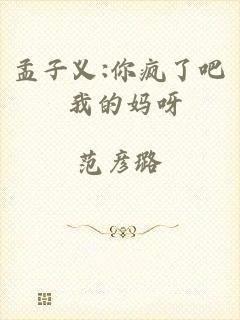 孟子义:你疯了吧
我的妈呀
范彦璐